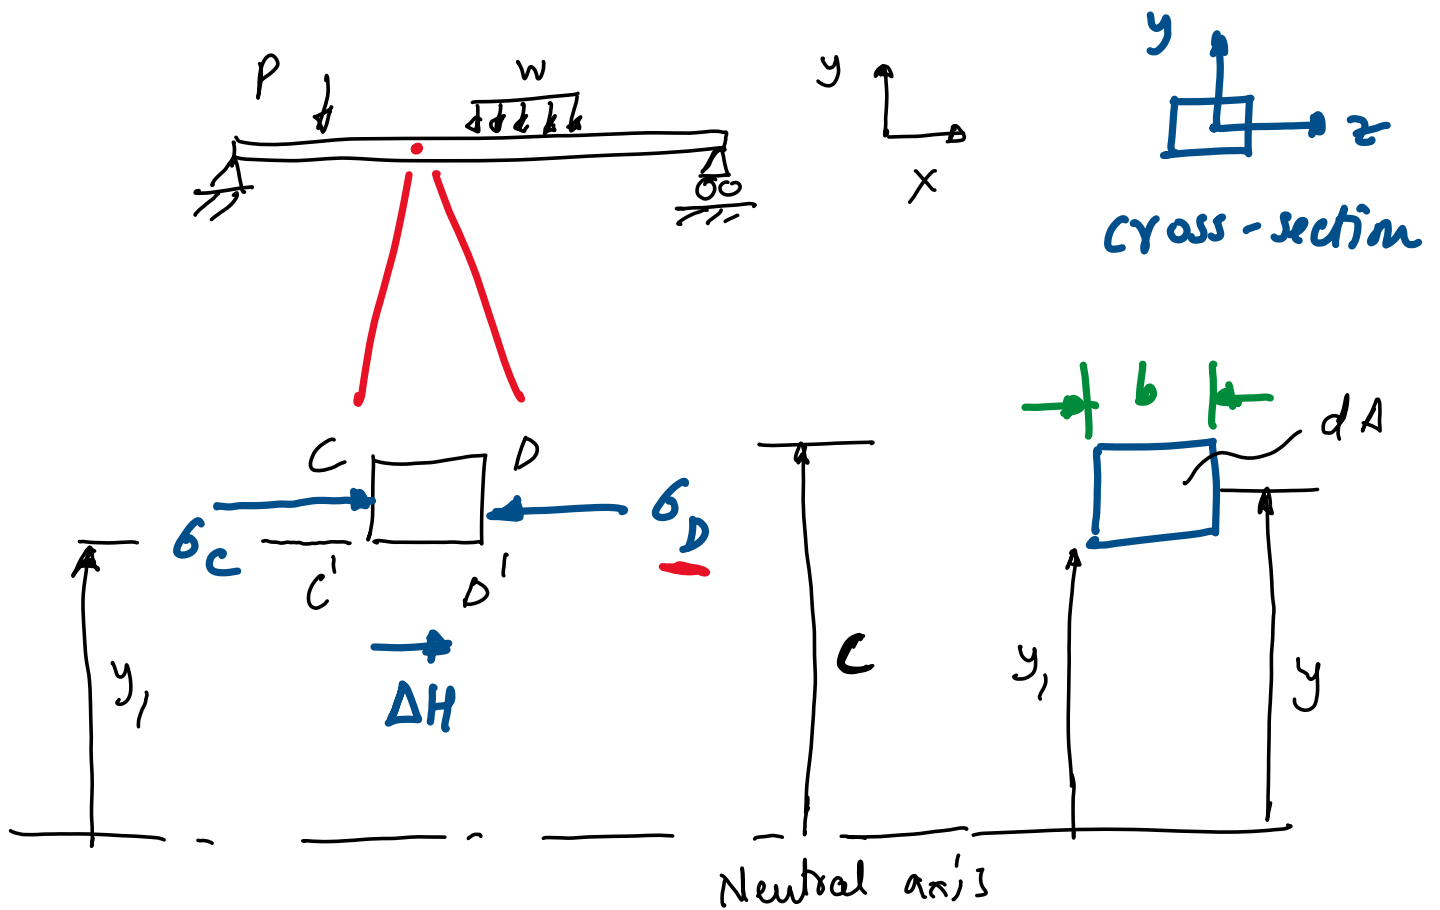 P
w
y
x
y
z
cross-section
b
dA
C
D
σC
σD
C'
D'
ΔH
y1
C
y1
y
Neutral axis